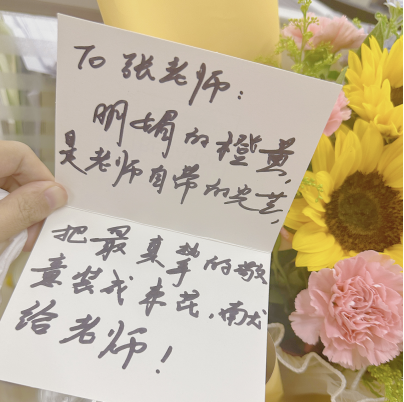 To 张老师:
明媚的橙黄,
是老师自带的光芒,
把最真挚的敬
意装成束花,献
给老师!